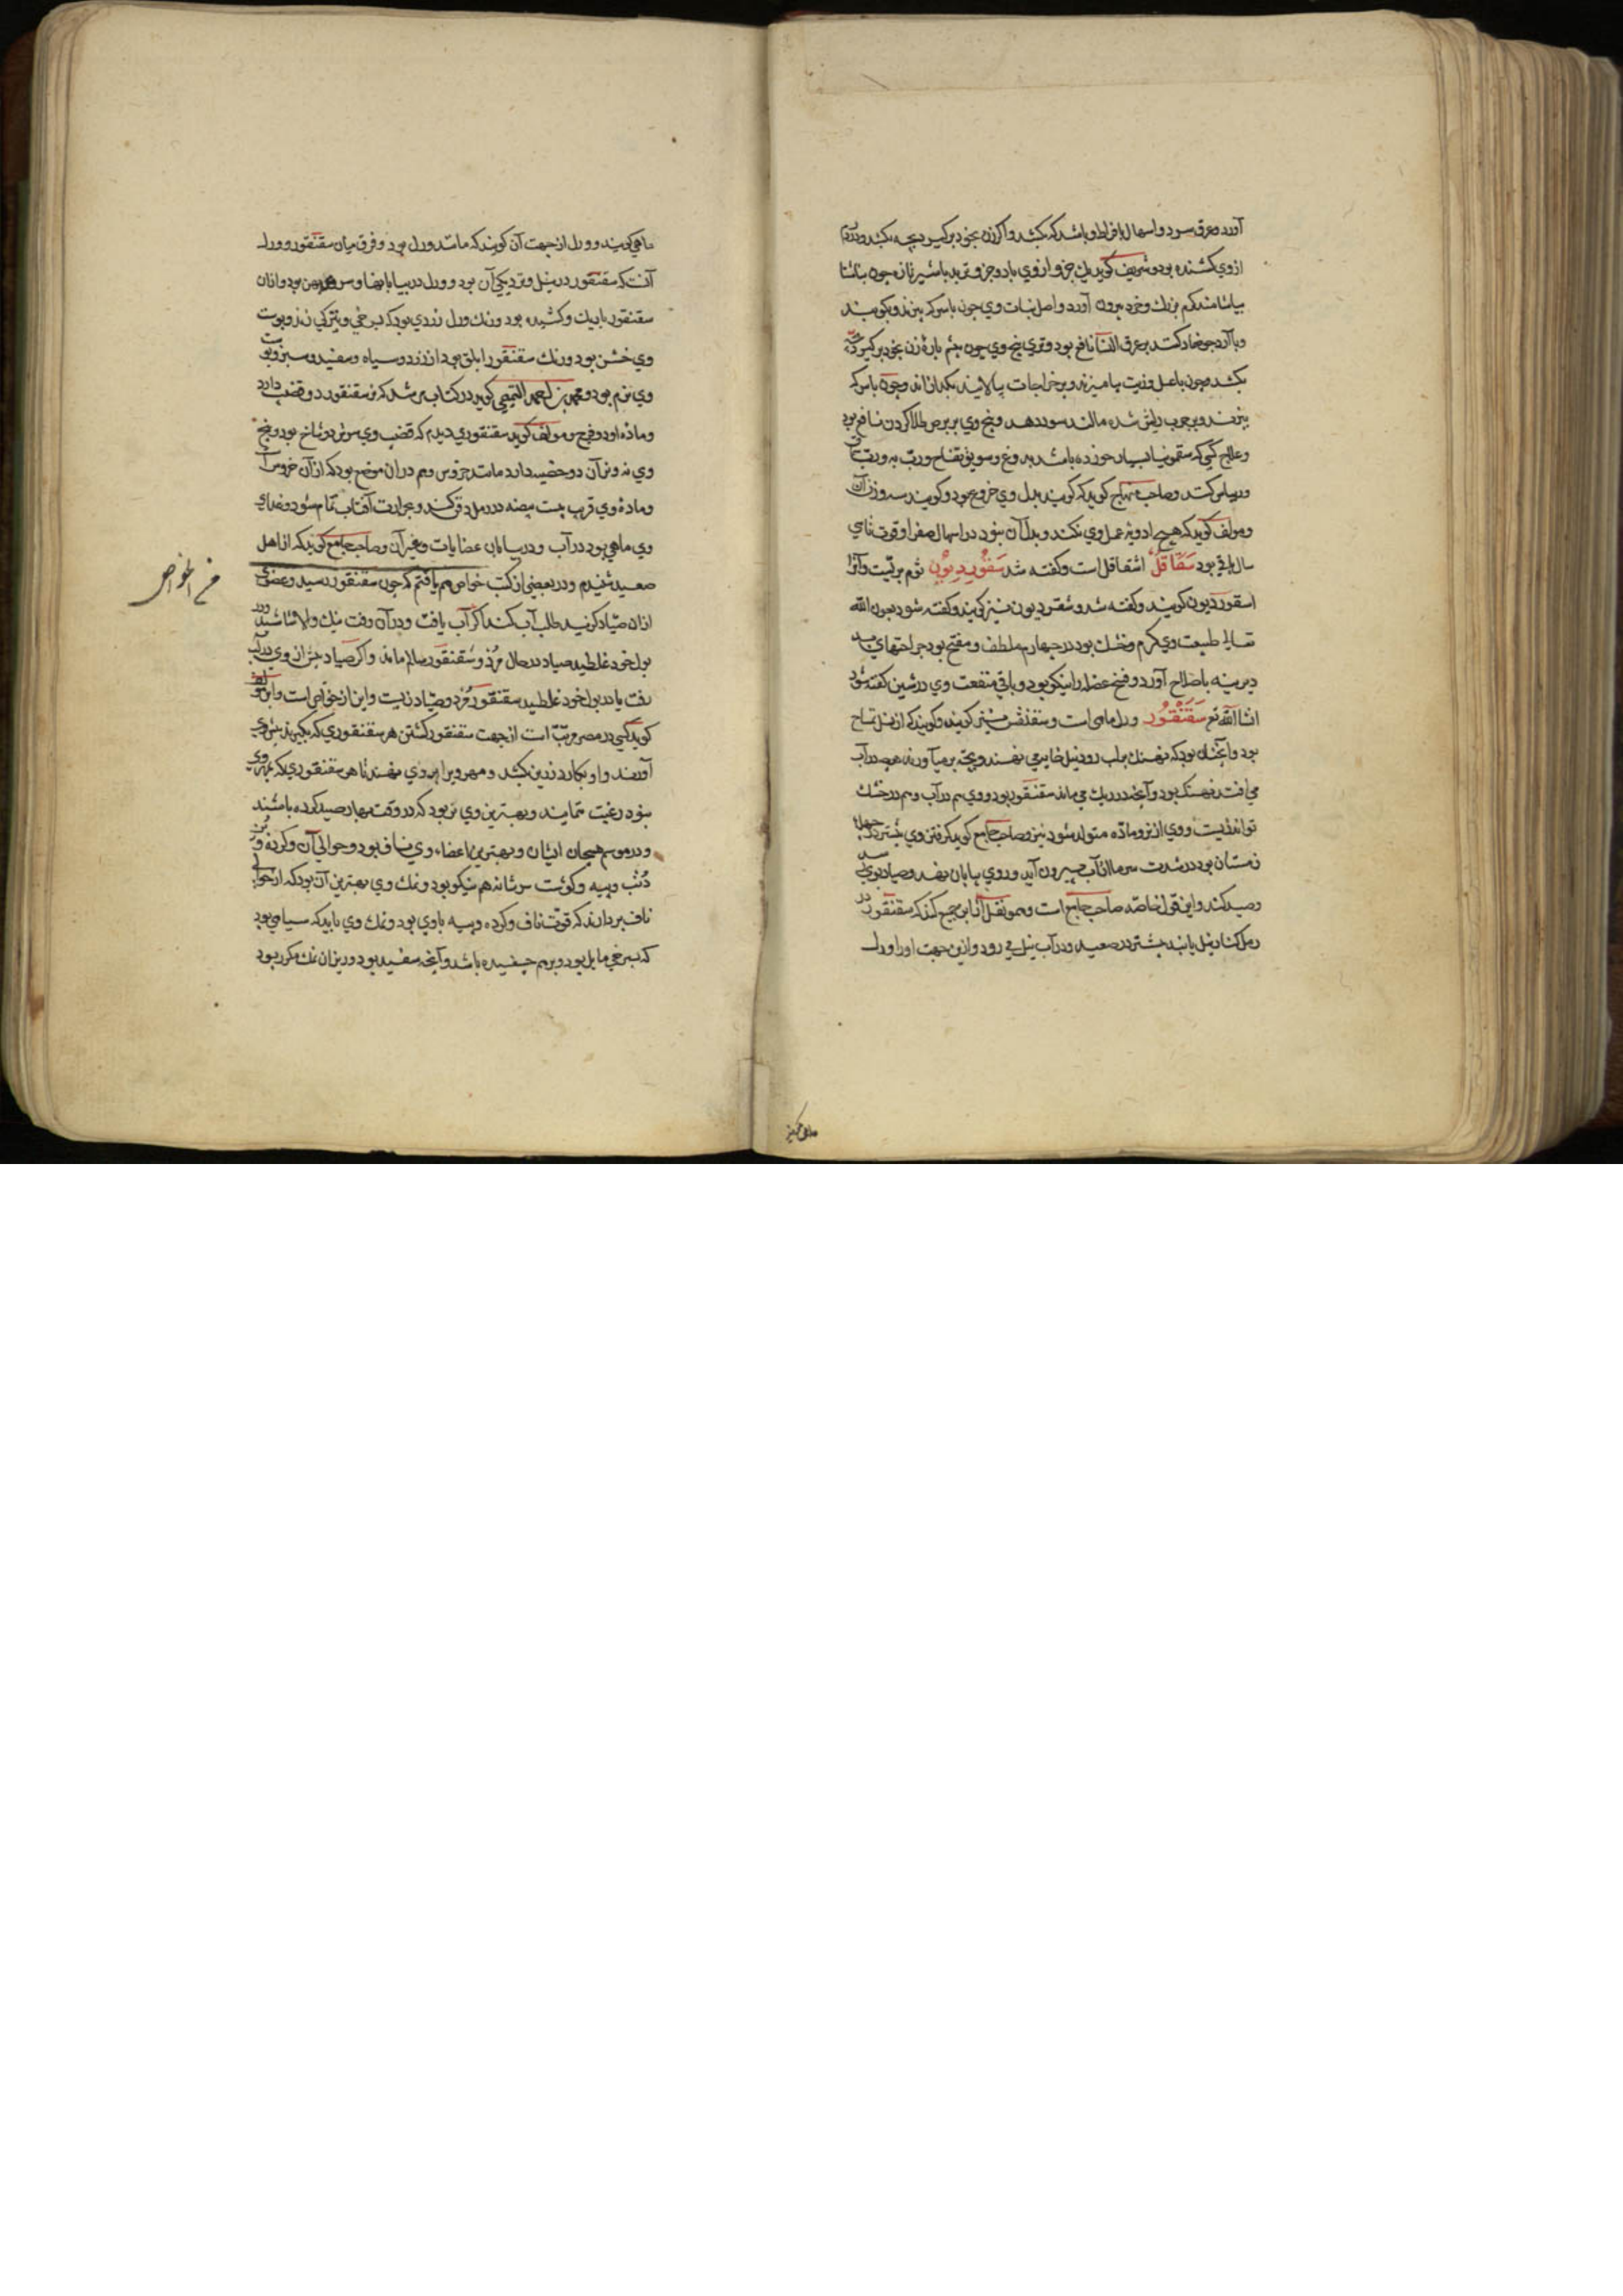 آورد و عرق سرد و اسهال بافراط و باشد که بکشد و اگر زن بخود برگیرد بچه بکشد و
از وی کشنده بود و شریف گوید یک جزو از وی با دو جزو تربد با شیر تازه چون بناشتا
بیاشامند کرم بزرگ و خرد بیرون آورد و اصل نبات وی چون با سرکه بپزند و بکوبند
و با آرد جو ضماد کنند بر عرق النسا نافع بود و قدری بیخ وی چون پشم پاره زن بخود برگیرد بچه
بکشد و چون با عسل و زیت بیامیزند و بر خراجات بمالند بگدازاند و چون با سرکه
بپزند و بر جرب ریش شده مالند سود دهد و بیخ وی بر برص طلا کردن نافع بود
و علاج کسی که سقمونیا بسیار خورده باشد بدوغ و سویق تفاح و رب به و رب
و ریباس کنند و صاحب منهاج گوید که گویند بدل وی خروع بود و گویند سه وزن آن
و مولف گوید که هیچ ادویه عمل وی نکند و بدل آن نبود در اسهال صفرا و قوت تا سی
سال باقی بود سقاقل اشقاقل است و گفته شد سقوردیون ثوم بریست و آنرا
اسقوردیون گویند و گفته شد و شقردیون نیز گویند و گفته شود بعون الله
تعالی طبیعت وی گرم و خشک بود در چهارم ملطف و مفتح بود جراحتهای بد
دیرینه باصلاح آورد و فسخ عضله را نیکو بود و باقی منفعت وی در شین گفته شود
انشاالله تع سقنقور ورل ماهی است و سقنقس نیز گویند و گویند که از نسل تمساح
بود و آنچنان بود که نهنگ بر لب رود نیل خایه می نهند و بچه بر میآورند هرچه در آب
می افتد نهنگ بود و آنچه در ریگ می ماند سقنقور بود و وی هم در آب و هم در خشک
تواند زیست و وی از نر و ماده متولد شود نیز و صاحب جامع گوید گرفتن وی بیشتر در چهله
زمستان بود در شدت سرما از آب بیرون آید و روی به بیابان نهد و صیاد بوی رسد
و صید کند و این قول خاصه صاحب جامع است و هم و نقل از ابن جمیع کند که سقنقور در
رمل کنار نیل یابند بیشتر در صعید و در آب نیل می رود و ازین جهت او را ورل
ماهی گویند و ورل از جهت آن گویند که مانند ورل بود و فرق میان سقنقور و ورل
آنست که سقنقور در نیل و نزدیکی آن بود و ورل در بیابانها و سر ورل پهن بود و از آن
سقنقور باریک و کشیده بود و رنگ ورل زردی بود که بسرخی و تیرگی زند و پوست
وی خشن بود و رنگ سقنقور ابلق بود از زرد و سیاه و سفید و سبز و پوست
وی نرم بود و محمد بن احمد التمیمی گوید در کتاب مرشد که نر سقنقور دو قضیب دارد
و ماده او دو فرج و مولف گوید سقنقوری دیدم که قضیب وی سرش دو شاخ بود و بیخ
وی نه و نر آن دو خصیه دارد مانند خروس و هم در آن موضع بود که از آن خروس است
و ماده وی قریب بیست بیضه در رمل دفن کند و بحرارت آفتاب تمام شود و غذای
وی ماهی بود در آب و در بیابان عضایات و غیر آن و صاحب جامع گوید که از اهل
صعید شنیدم و در بعضی از کتب خواص هم یافتم که چون سقنقور رسید و عضوی
از آن صیاد گزید طلب آب کند اگر آب یافت و در آن رفت نیک و الا شاشید و در
بول خود غلطید صیاد در حال مرد و سقنقور سالم ماند و اگر صیاد پیش از وی در آب
رفت یا در بول خود غلطید سقنقور مرد و صیاد زیست و این از خواص است و ابن
گوید کسی در مصر مرتب است از جهت سقنقور کشتن هر سقنقوری که بگیرند پیش وی
آورند و او بکارد زرین بکشد و مهر ویرا بر وی نهند تا هر سقنقوری که بمهر وی
بود رغبت نمایند و بهترین وی نر بود که در وقت بهار صید کرده باشند
و در موسم هیجان ایشان و بهترین اعضاء وی ناف بود و حوالی آن و گرده و بن
ذنب و پیه و گوشت سر شانه هم نیکو بود و نمک وی بهترین آن بود که از حوالی
ناف بردارند که قوت ناف و گرده و پیه با وی بود و نمک وی باید که سیاهی بود
که بسرخی مایل بود و بر هم چفسیده باشد و آنچه سفید بود و ریزان نمک مکرر بود